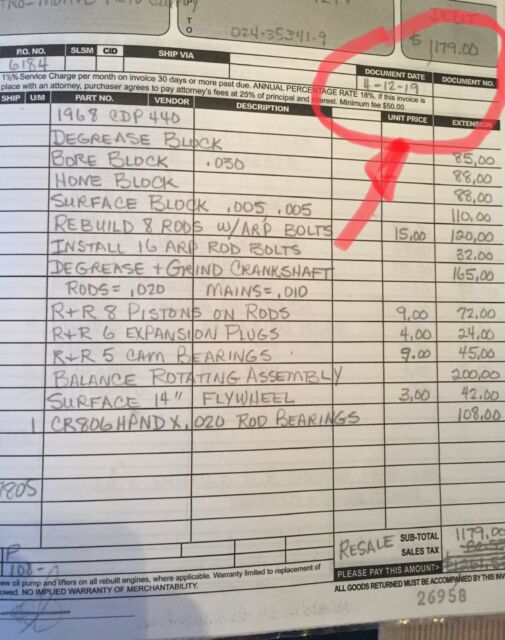 DEBIT
T
O
024-35341-9
$ 1179.00
P.O. NO. SLSM CID SHIP VIA DOCUMENT DATE DOCUMENT NO.
6184 4-12-19
1½% Service Charge per month on invoice 30 days or more past due. ANNUAL PERCENTAGE RATE 18%. If this invoice is
place with an attorney, purchaser agrees to pay attorney's fees at 25% of principal and interest. Minimum fee $50.00.
SHIP U/M PART NO. VENDOR DESCRIPTION UNIT PRICE EXTENSION
1968 CDP 440
DEGREASE BLOCK 85.00
BORE BLOCK .030 88.00
HONE BLOCK 88.00
SURFACE BLOCK .005 .005 110.00
REBUILD 8 RODS W/ARP BOLTS 15.00 120.00
INSTALL 16 ARP ROD BOLTS 32.00
DEGREASE + GRIND CRANKSHAFT 165.00
RODS = .020 MAINS = .010
R+R 8 PISTONS ON RODS 9.00 72.00
R+R 6 EXPANSION PLUGS 4.00 24.00
R+R 5 CAM BEARINGS 9.00 45.00
BALANCE ROTATING ASSEMBLY 200.00
SURFACE 14" FLYWHEEL 3.00 42.00
1 CR806HPND X .020 ROD BEARINGS 108.00
7805
RESALE SUB-TOTAL 1179.00
SALES TAX
PLEASE PAY THIS AMOUNT>
ew oil pump and lifters on all rebuilt engines, where applicable. Warranty limited to replacement of
owed. NO IMPLIED WARRANTY OF MERCHANTABILITY.
ALL GOODS RETURNED MUST BE ACCOMPANIED BY THIS INV
26958